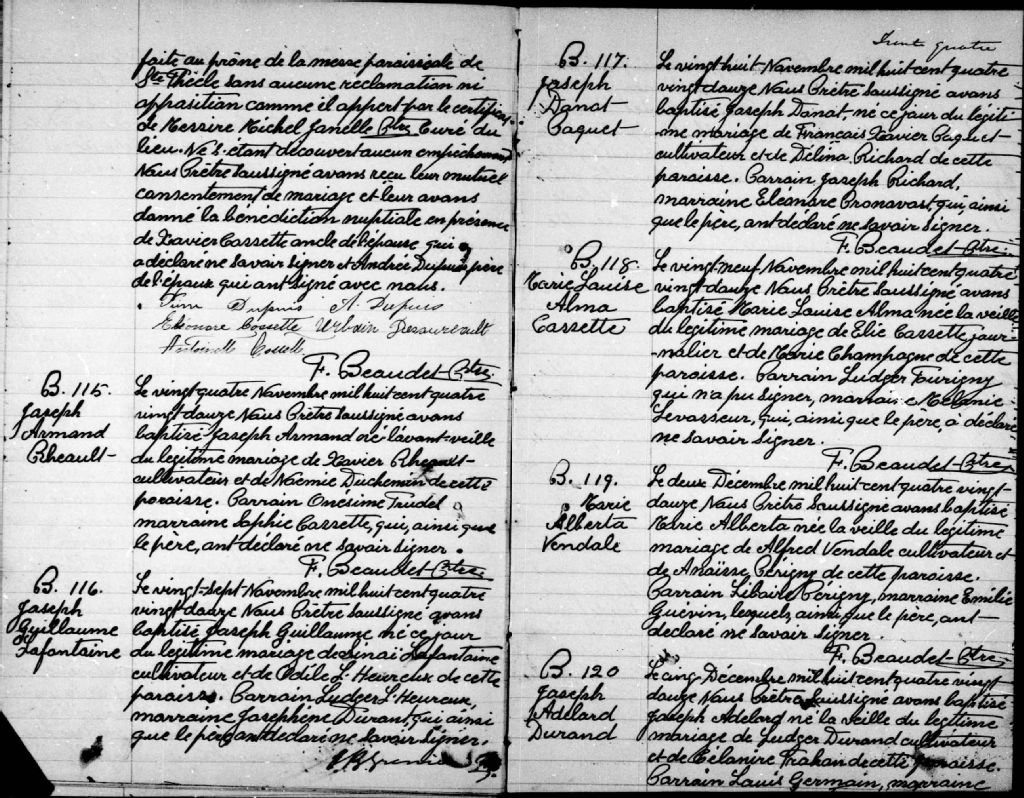 faite au prône de la messe paroissiale de
Ste Thècle sans aucune reclamation ni
opposition comme il appert par le certificat
de Messire Michel Janelle Ptre Curé du
lieu. Ne s'étant découvert aucun empêchement
Nous Prêtre Soussigné avons reçu leur mutuel
consentement de mariage et leur avons
donné la bénédiction nuptiale en présence
de Xavier Cossette oncle de l'épouse qui
a déclaré ne savoir signer et Andrée Dupuis père
de l'époux qui ont signé avec nous.
Dupuis A. Dupuis
Eléonore Cossette Urbain Desaureault
Antoinette Cossette
F. Beaudet Ptre.
B. 115.
Joseph
Armand
Rheault
Le vingt quatre Novembre mil huit cent quatre
vingt douze Nous Prêtre Soussigné avons
baptisé Joseph Armand né l'avant-veille
du légitime mariage de Xavier Rheault
cultivateur et de Noémie Duchemin de cette
paroisse. Parrain Onésime Trudel
marraine Sophie Cossette, qui, ainsi que
le père, ont déclaré ne savoir signer.
F. Beaudet Ptre.
B. 116.
Joseph
Guillaume
Lafontaine
Le vingt-sept Novembre mil huit cent quatre
vingt douze Nous Prêtre Soussigné avons
baptisé Joseph Guillaume né ce jour
du légitime mariage de Sinaï Lafontaine
cultivateur et de Odile L'Heureux de cette
paroisse. Parrain Ludger L'Heureux,
marraine Josephène Durant, qui ainsi
que le père ont declaré ne savoir signer.
Trent quatre
B. 117.
Joseph
Donat
Paquet
Le vingt huit Novembre mil huit cent quatre
vingt douze Nous Prêtre Soussigné avons
baptisé Joseph Donat, né ce jour du légiti
-me mariage de François Xavier Paquet
cultivateur et de Délina Richard de cette
paroisse. Parrain Joseph Richard,
marraine Eléonore Pronovost, qui, ainsi
que le père, ont déclaré ne savoir signer.
F. Beaudet Ptre.
B. 118.
Marie Louise
Alma
Cossette
Le vingt-neuf Novembre mil huit cent quatre
vingt douze Nous Prêtre Soussigné avons
baptisé Marie Louise Alma née la veille
du légitime mariage de Elie Cossette jour-
-nalier et de Marie Champagne de cette
paroisse. Parrain Ludger Turigny
qui n'a pu signer, marraine Mélanie
Levasseur, qui, ainsi que le père, a déclaré
ne savoir signer.
F. Beaudet Ptre.
B. 119.
Marie
Alberta
Vendale
Le deux Décembre mil huit cent quatre vingt
douze Nous Prêtre Soussigné avons baptisé
Marie Alberta née la veille du légitime
mariage de Alfred Vendale cultivateur et
de Anaïsse Périgny de cette paroisse.
Parrain Libaire Périgny, marraine Emilie
Guérin, lesquels, ainsi que le père, ont
declaré ne savoir signer.
F. Beaudet Ptre.
B. 120
Joseph
Adélard
Durand
Le cinq Décembre mil huit cent quatre vingt
douze Nous Prêtre Soussigné avons baptisé
Joseph Adelard né la veille du légitime
mariage de Ludger Durand cultivateur
et de Célanire Trahan de cette paroisse.
Parrain Louis Germain, marraine